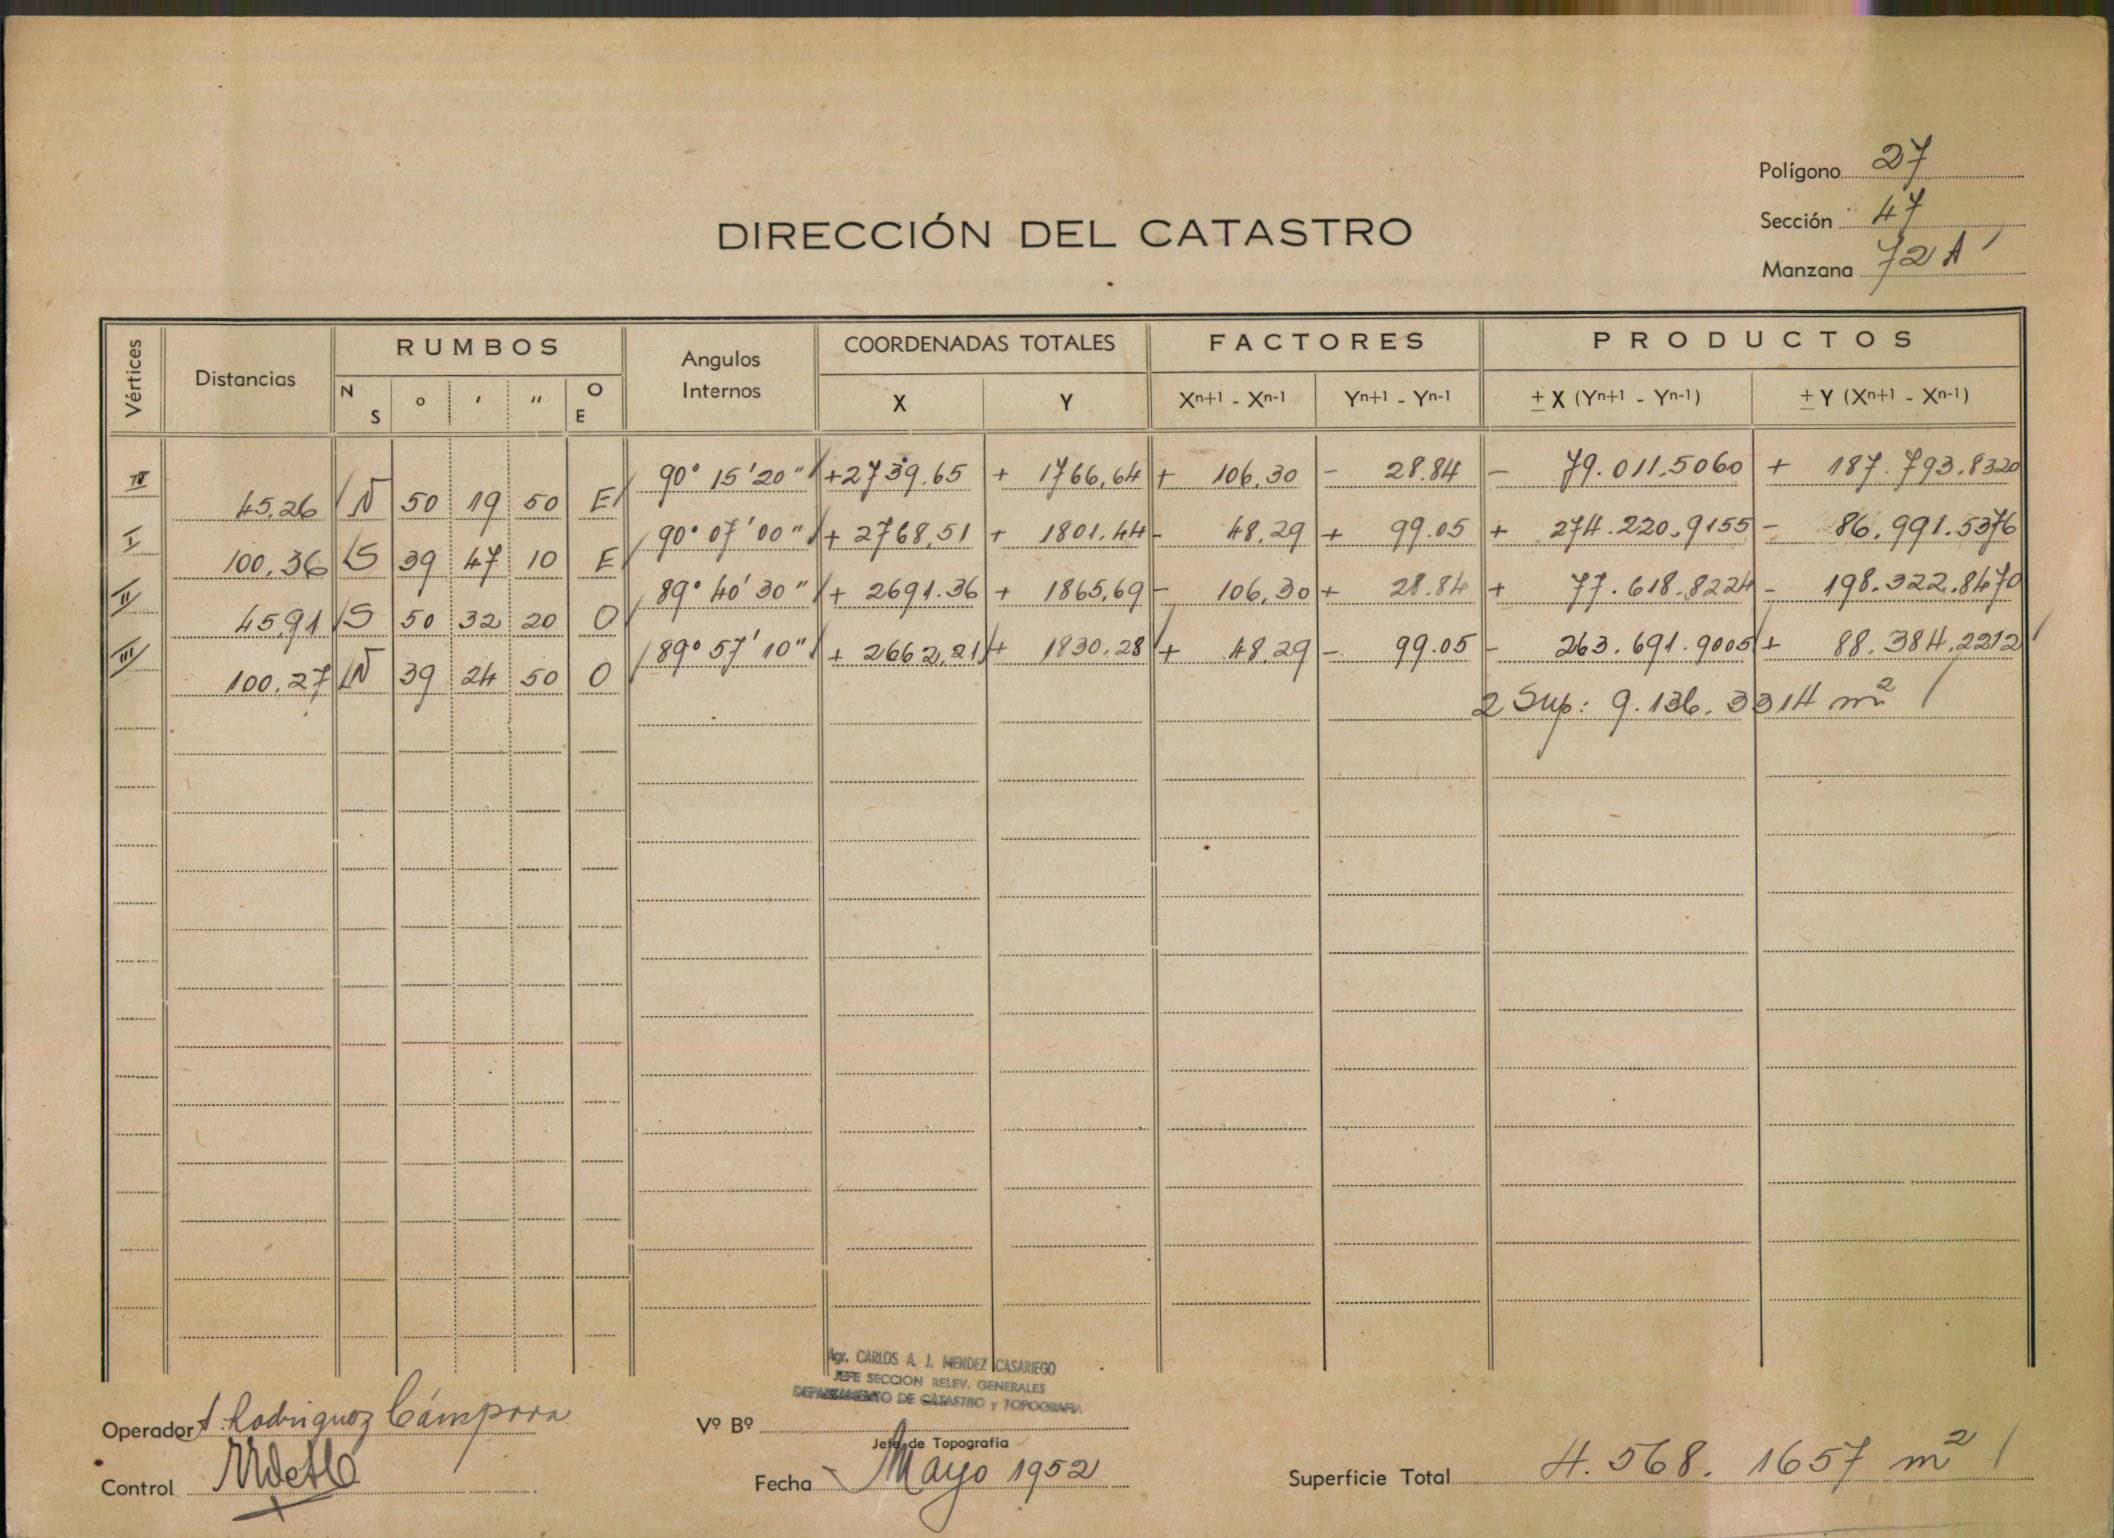 Polígono 27
Sección 47
Manzana 72 A
DIRECCIÓN DEL CATASTRO
Vértices Distancias RUMBOS Angulos Internos COORDENADAS TOTALES FACTORES PRODUCTOS
N S ° ' " O E X Y Xn+1 - Xn-1 Yn+1 - Yn-1 ± X (Yn+1 - Yn-1) ± Y (Xn+1 - Xn-1)
IV 90° 15' 20" +2739.65 + 1766,64 + 106,30 - 28.84 - 79.011.5060 + 187.793.8320
45,26 N 50 19 50 E
I 90° 07' 00" + 2768,51 + 1801.44 - 48,29 + 99.05 + 274.220.9155 - 86.991.5376
100,36 S 39 47 10 E
II 89° 40' 30" + 2691.36 + 1865,69 - 106,30 + 28.84 + 77.618.8224 - 198.322.8470
45,91 S 50 32 20 O
III 89° 57' 10" + 2662,21 + 1830.28 + 48,29 - 99.05 - 263.691.9005 + 88.384,2212
100,27 N 39 24 50 O
2 Sup: 9.136.3314 m²
Agr. CARLOS A. J. MENDEZ CASARIEGO
JEFE SECCION RELEV. GENERALES
DEPARTAMENTO DE CATASTRO y TOPOGRAFIA
Operador A. Rodriguez Cámpora
Vº Bº
Jefe de Topografía
Control
Fecha Mayo 1952
Superficie Total 4.568.1657 m²